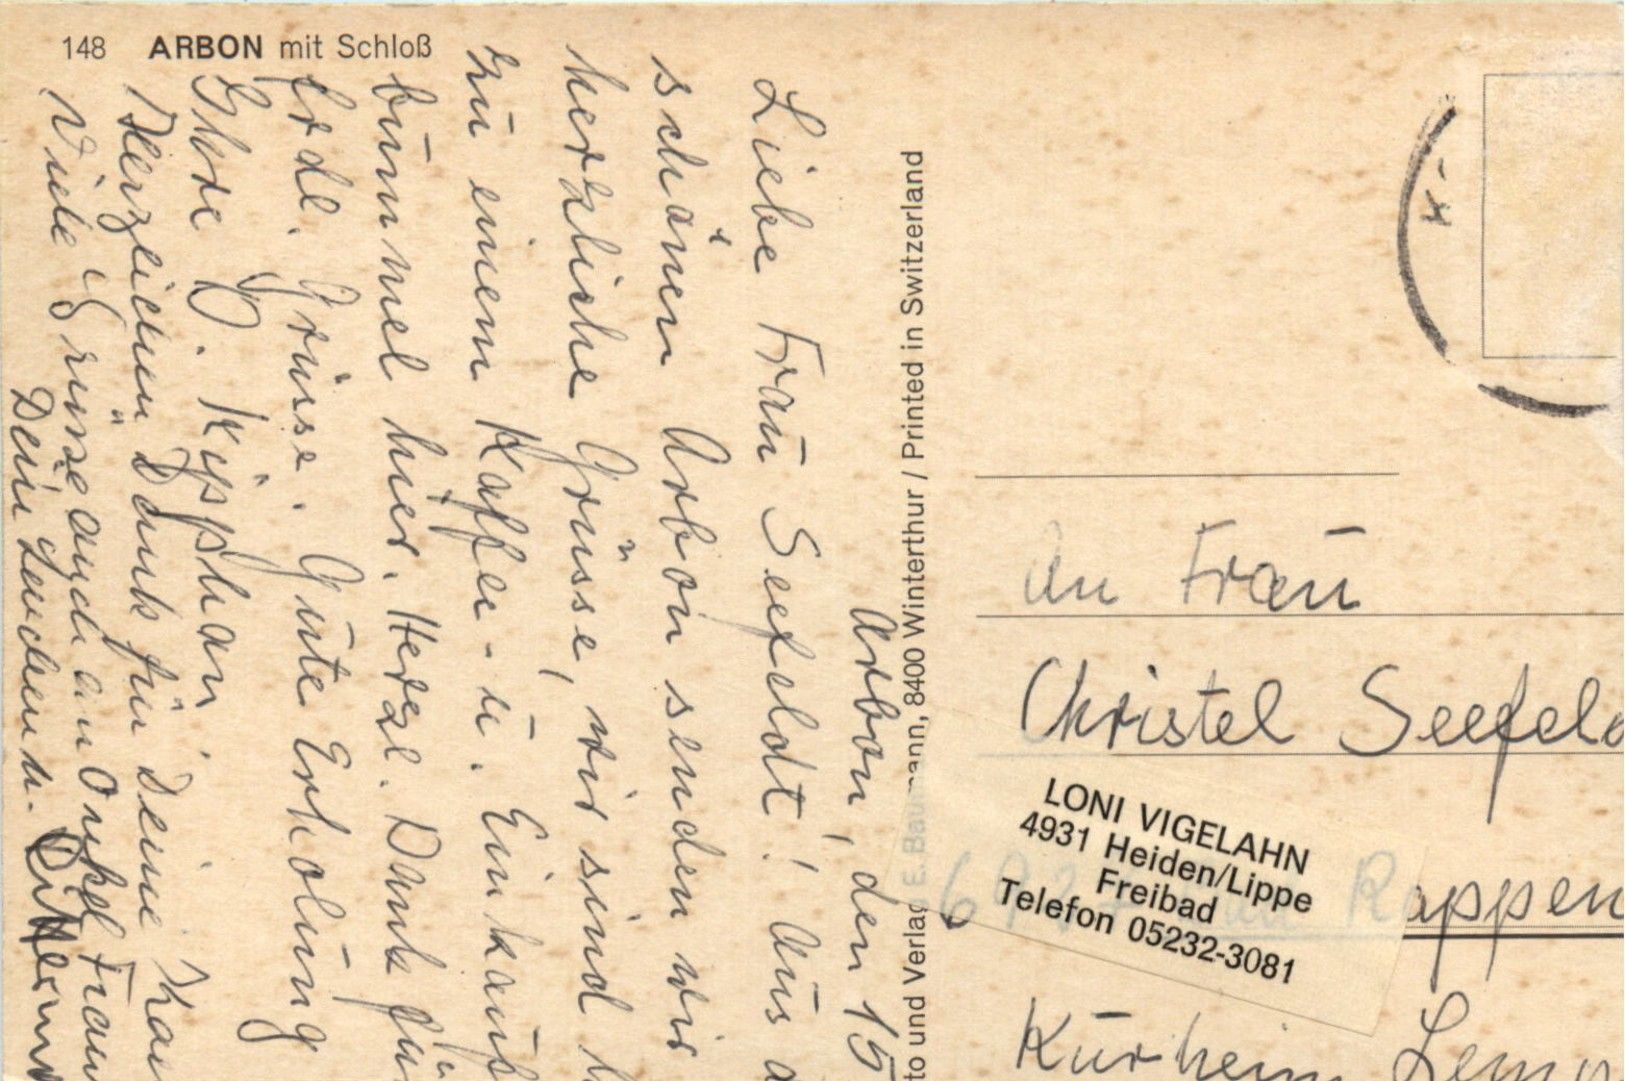 148 ARBON mit Schloß
Arbon, den 15
Liebe Frau Seefeldt! Aus
schönen Arbon senden wir
herzliche Grüsse, wir sind
zu einem Kaffee- u. Einkaufs
bummel hier. Herzl. Dank für
Grüsse. Gute Erholung
Ihre Kipphan
Herzlichen Dank für Deine
Viele Grüsse auch an Onkel Franz
Dein
to und Verlag E. Baumann, 8400 Winterthur / Printed in Switzerland
An Frau
Christel Seefeld
LONI VIGELAHN
4931 Heiden/Lippe
Freibad
Telefon 05232-3081
692 Rappen
Kurheim